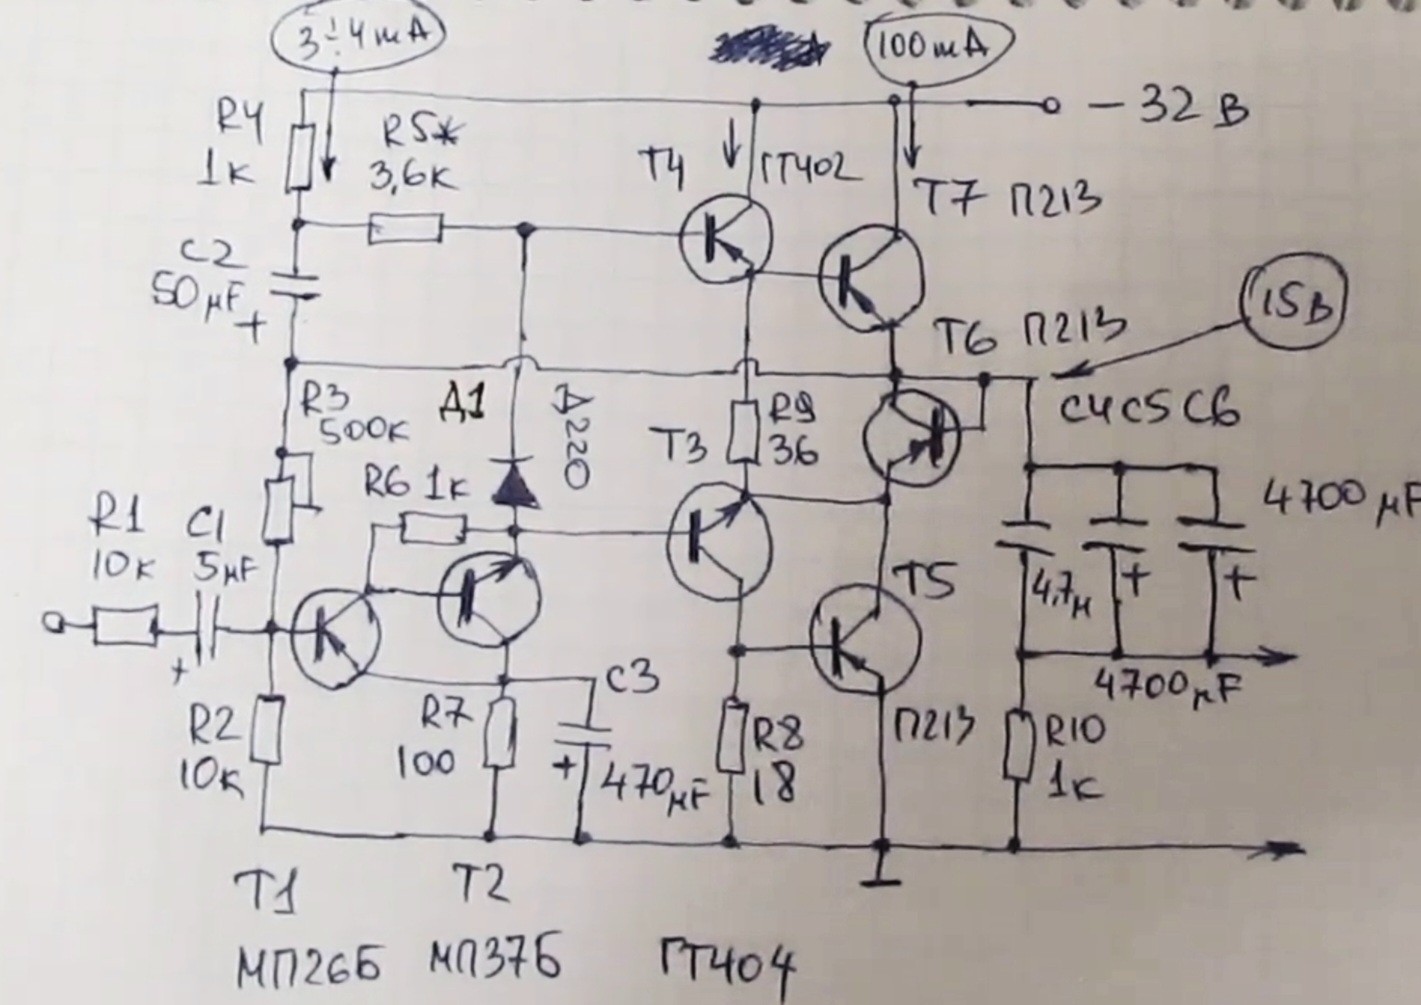 3÷4mA
100mA
R4
1к
R5*
3,6к
- 32 В
T4
ГТ402
T7 П213
C2
50µF
+
15В
T6 П213
R3
500к
Д1
Д220
R9
36
C4 C5 C6
T3
R6 1к
4700 µF
R1
10к
C1
5µF
+
T5
4,7µ
+
+
4700µF
R2
10к
R7
100
C3
+
470µF
R8
18
П213
R10
1к
T1
T2
МП26Б
МП37Б
ГТ404